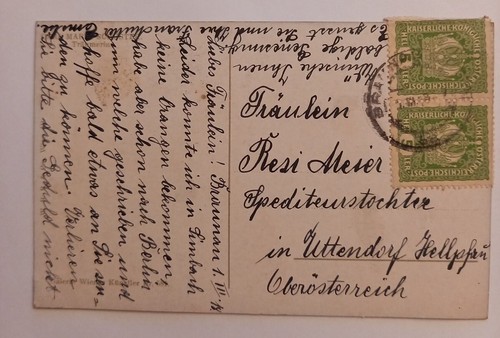 Liebes Fräulein! Braunau 1. VII. 18
Leider konnte ich in Simbach
keine Orangen bekommen,
habe aber schon nach Berlin
um welche geschrieben und
hoffe bald etwas an Sie sen-
den zu können. Verlieren
Sie bitte die Geduld nicht
Wünsche Ihnen
baldige Genesung
es grüsst Sie und Ihre
Familie
Fräulein
Resi Meier
Spediteurstochter
in Uttendorf Hellpfau
Oberösterreich
KAISERLICHE KÖNIGLICHE
5
REICHISCHE POST
KAISERLICHE KÖNIGLICHE
REICHISCHE POST
BRAU